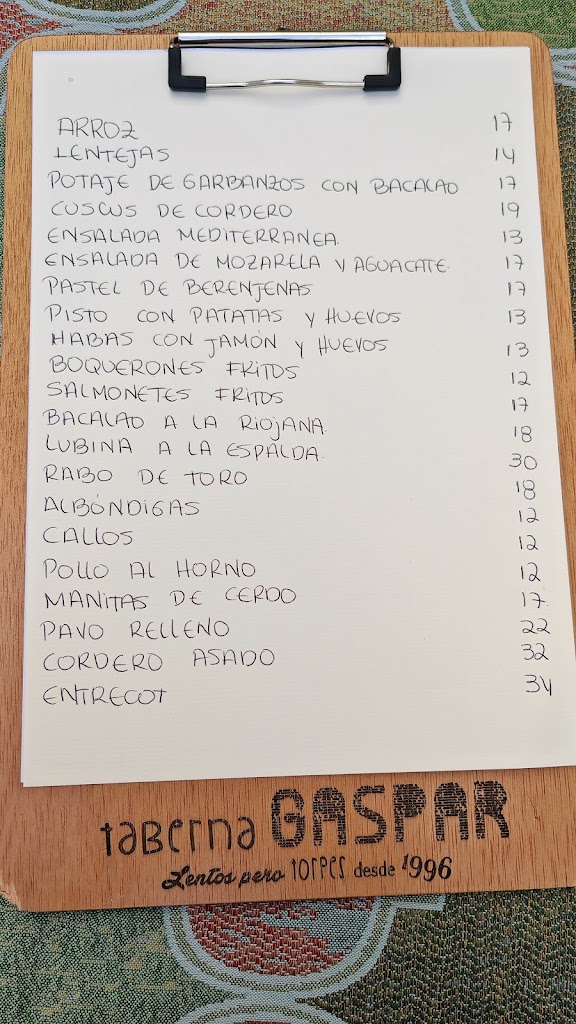 ARROZ 17
LENTEJAS 14
POTAJE DE GARBANZOS CON BACALAO 17
CUSCUS DE CORDERO 19
ENSALADA MEDITERRANEA. 13
ENSALADA DE MOZARELA Y AGUACATE. 17
PASTEL DE BERENJENAS 17
PISTO CON PATATAS Y HUEVOS 13
HABAS CON JAMÓN Y HUEVOS 13
BOQUERONES FRITOS 12
SALMONETES FRITOS 17
BACALAO A LA RIOJANA. 18
LUBINA A LA ESPALDA. 30
RABO DE TORO 18
ALBÓNDIGAS 12
CALLOS 12
POLLO AL HORNO 12
MANITAS DE CERDO 17.
PAVO RELLENO 22
CORDERO ASADO 32
ENTRECOT 34
taberna GASPAR
Lentos pero torpes desde 1996